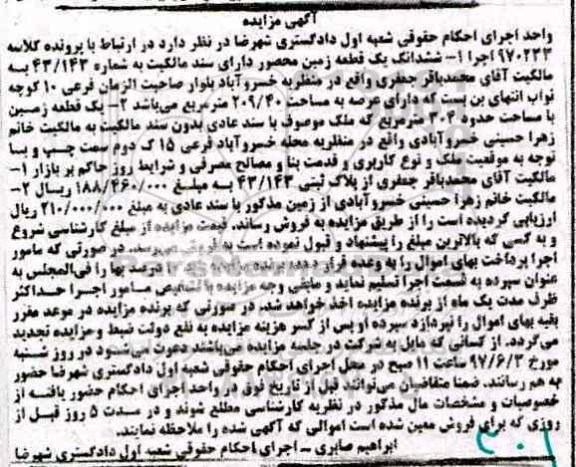 آگهی مزایده
واحد اجرای احکام حقوقی شعبه اول دادگستری شهرضا در نظر دارد در ارتباط با پرونده کلاسه
۹۷۰۲۲۳ اجرا ۱- ششدانگ یک قطعه زمین محصور دارای سند مالکیت به شماره ۴۳/۱۴۳ به
مالکیت آقای محمدباقر جعفری واقع در منظریه خسروآباد بلوار صاحبت الزمان فرعی ۱۰ کوچه
نواب انتهای بن بست که دارای عرصه به مساحت ۲۰۹/۴۰ مترمربع می‌باشد ۲- یک قطعه زمین
با مساحت حدود ۳۰۴ مترمربع که ملک موصوف با سند عادی بدون سند مالکیت به مالکیت خانم
زهرا حسینی خسروآبادی واقع در منظریه محله خسروآباد فرعی ۱۵ ک دوم سمت چپ و با
توجه به موقعیت ملک و نوع کاربری و قدمت بنا و مصالح مصرفی و شرایط روز حاکم بر بازار ۱-
مالکیت آقای محمدباقر جعفری از پلاک ثبتی ۴۳/۱۴۳ به مبلغ ۱۸۸/۴۶۰/۰۰۰ ریال ۲-
مالکیت خانم زهرا حسینی خسروآبادی از زمین مذکور با سند عادی به مبلغ ۲۱۰/۰۰۰/۰۰۰ ریال
ارزیابی گردیده است را از طریق مزایده به فروش رساند. قیمت مزایده از مبلغ کارشناسی شروع
و به کسی که بالاترین مبلغ را پیشنهاد و قبول نموده است به فروش می‌رسد. در صورتی که مامور
اجرا پرداخت بهای اموال را به وعده قرار دهد برنده مزایده باید ۱۰ درصد بها را فی‌المجلس به
عنوان سپرده به قسمت اجرا تسلیم نماید و مابقی وجه مزایده با تشخیص مامور اجرا حداکثر
ظرف مدت یک ماه از برنده مزایده اخذ خواهد شد. در صورتی که برنده مزایده در موعد مقرر
بقیه بهای اموال را نپردازد سپرده او پس از کسر هزینه مزایده به نفع دولت ضبط و مزایده تجدید
می‌گردد. از کسانی که مایل به شرکت در جلسه مزایده می‌باشند دعوت می‌شود در روز شنبه
مورخ ۹۷/۶/۳ ساعت ۱۱ صبح در محل اجرای احکام حقوقی شعبه اول دادگستری شهرضا حضور
به هم رسانند. ضمنا متقاضیان می‌توانند قبل از تاریخ فوق در واحد اجرای احکام حضور یافته از
خصوصیات و مشخصات مال مذکور در نظریه کارشناسی مطلع شوند و در مدت ۵ روز قبل از
روزی که برای فروش معین شده است اموالی که آگهی شده را ملاحظه نمایند.
ابراهیم صابری - اجرای احکام حقوقی شعبه اول دادگستری شهرضا